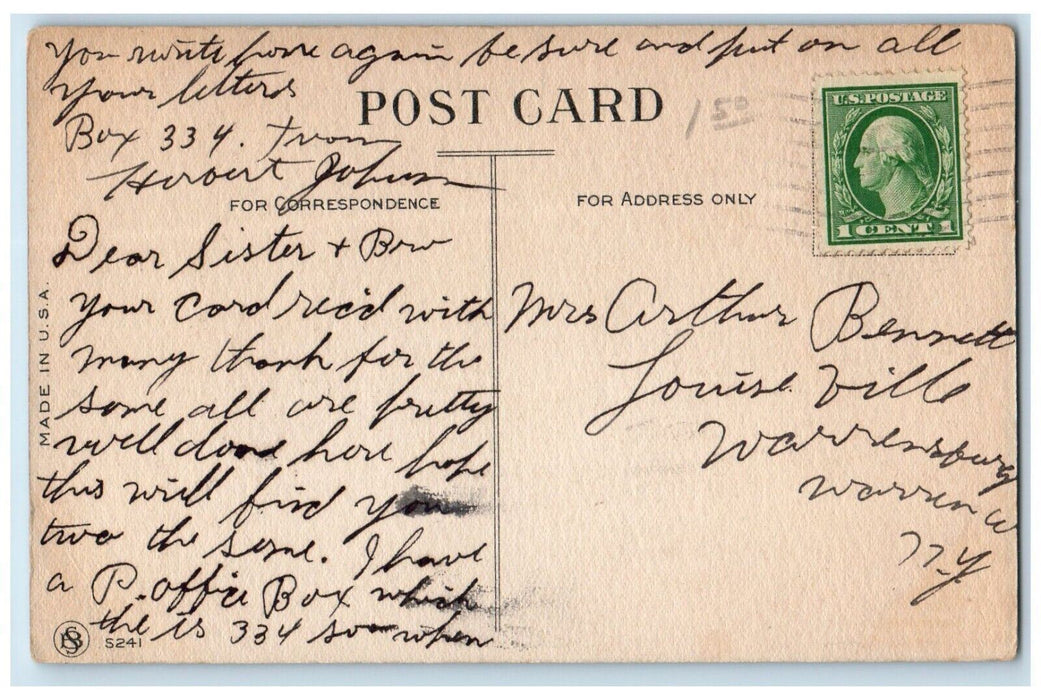 you write hore again be sure and put on all
your letters
Box 334. from
Herbert Johnson
POST CARD
1 50
U.S. POSTAGE
1 CENT 1
FOR CORRESPONDENCE
FOR ADDRESS ONLY
Dear Sister + Bro
your card rec'd with
many thank for the
same all are pretty
well done here hope
this will find you
two the same. I have
a P. office Box which
the is 334 so when
Mrs Arthur Bennett
Louise Ville
Warrensburg
Warren Co
N.Y.
MADE IN U.S.A.
S241